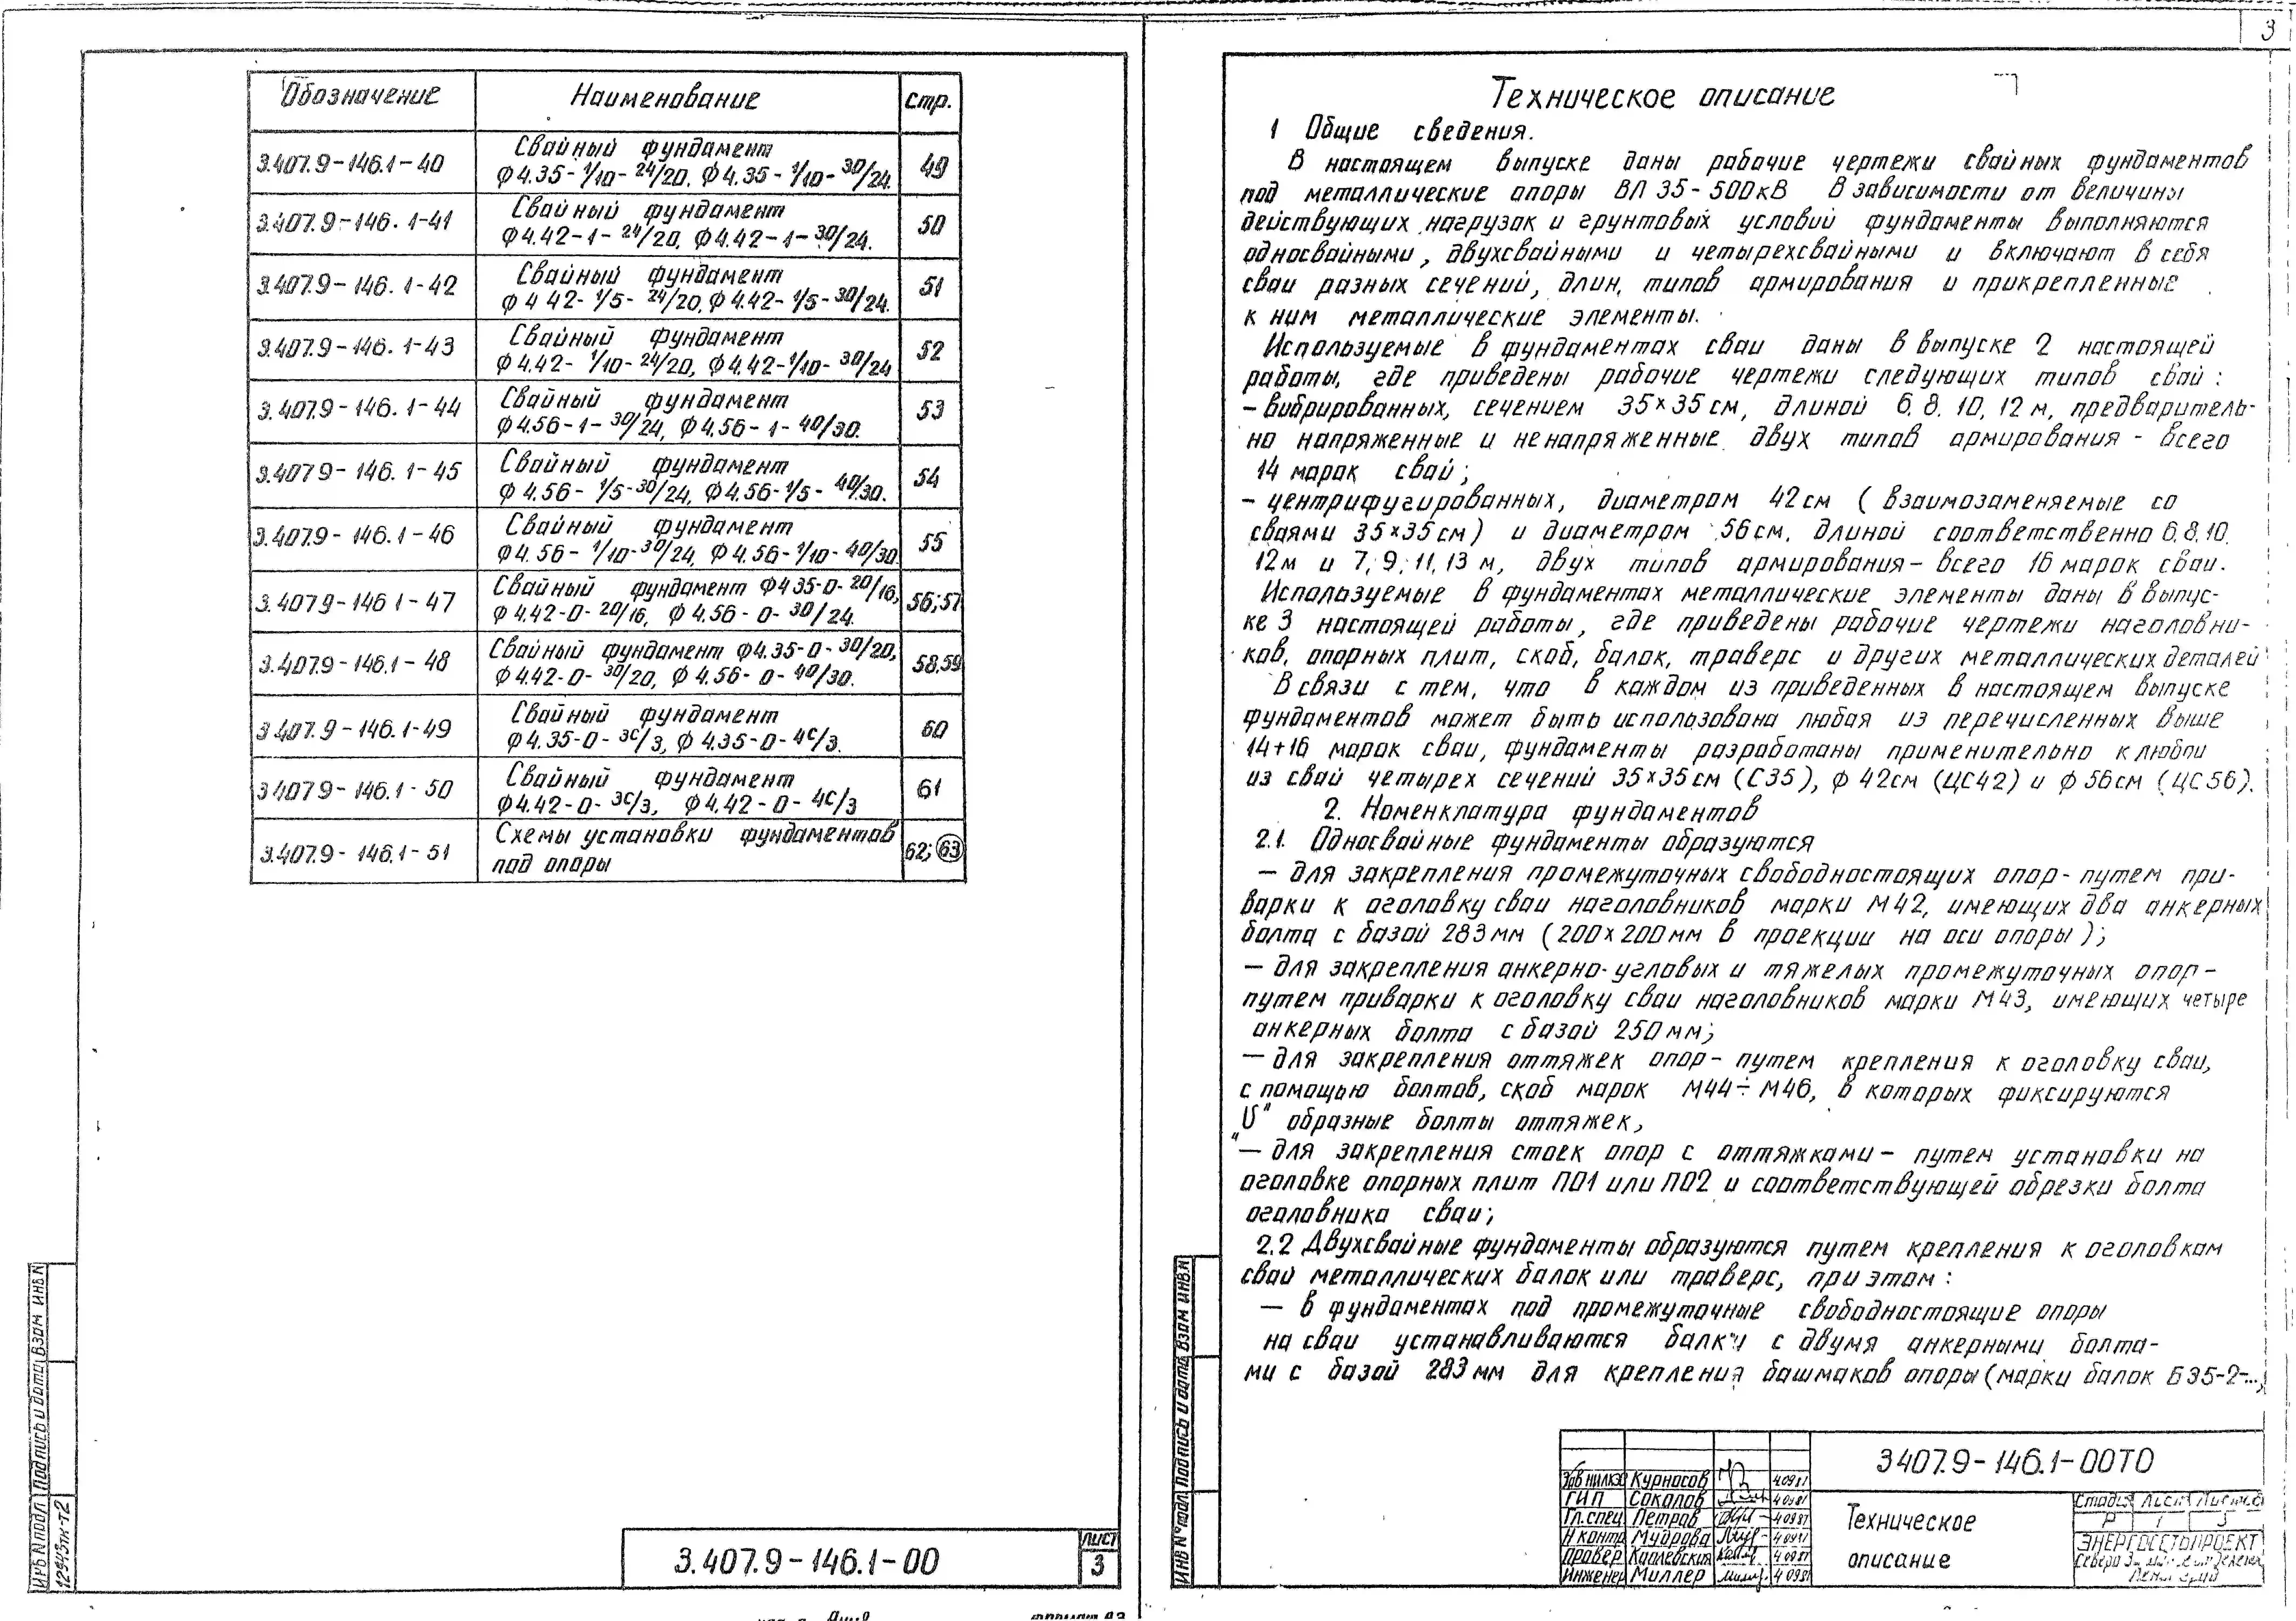 Обозначение Наименование Стр.
3.407.9-146.1-40 Свайный фундамент
Ф4.35-1/10-24/20, Ф4.35-1/10-30/24. 49
3.407.9-146.1-41 Свайный фундамент
Ф4.42-1-24/20, Ф4.42-1-30/24. 50
3.407.9-146.1-42 Свайный фундамент
Ф4 42-1/5-24/20, Ф4.42-1/5-30/24. 51
3.407.9-146.1-43 Свайный фундамент
Ф4.42-1/10-24/20, Ф4.42-1/10-30/24 52
3.407.9-146.1-44 Свайный фундамент
Ф4.56-1-30/24, Ф4.56-1-40/30. 53
3.4079-146.1-45 Свайный фундамент
Ф4.56-1/5-30/24, Ф4.56-1/5-40/30. 54
3.407.9-146.1-46 Свайный фундамент
Ф4.56-1/10-30/24, Ф4.56-1/10-40/30 55
3.4079-146 1-47 Свайный фундамент Ф4 35-0-20/16,
Ф4.42-0-20/16, Ф4.56-0-30/24. 56;57
3.407.9-146.1-48 Свайный фундамент Ф4.35-0-30/20,
Ф4.42-0-30/20, Ф4.56-0-40/30. 58,59
3.407.9-146.1-49 Свайный фундамент
Ф4.35-0-3С/3, Ф4.35-0-4С/3. 60
3.4079-146.1-50 Свайный фундамент
Ф4.42-0-3С/3, Ф4.42-0-4С/3 61
3.407.9-146.1-51 Схемы установки фундаментов
под опоры 62; 63
Инв N подл Подпись и дата Взам инв N
12943тм-т2
3.407.9-146.1-00
Лист
3
3
Техническое описание
1 Общие сведения.
В настоящем выпуске даны рабочие чертежи свайных фундаментов
под металлические опоры ВЛ 35-500кВ В зависимости от величины
действующих нагрузок и грунтовых условий фундаменты выполняются
односвайными, двухсвайными и четырехсвайными и включают в себя
сваи разных сечений, длин, типов армирования и прикрепленные
к ним металлические элементы.
Используемые в фундаментах сваи даны в выпуске 2 настоящей
работы, где приведены рабочие чертежи следующих типов свай:
- вибрированных, сечением 35×35см, длиной 6. 8. 10, 12 м, предваритель-
но напряженные и ненапряженные двух типов армирования - всего
14 марок свай;
- центрифугированных, диаметром 42см (взаимозаменяемые со
сваями 35×35см) и диаметром 56см, длиной соответственно 6.8.10.
12м и 7; 9; 11, 13 м, двух типов армирования - всего 16 марок сваи.
Используемые в фундаментах металлические элементы даны в выпус-
ке 3 настоящей работы, где приведены рабочие чертежи наголовни-
ков, опорных плит, скоб, балок, траверс и других металлических деталей
В связи с тем, что в каждом из приведенных в настоящем выпуске
фундаментов может быть использована любая из перечисленных выше
14+16 марок сваи, фундаменты разработаны применительно к любой
из свай четырех сечений 35×35см (С35), ф 42см (ЦС42) и ф 56см (ЦС56).
2. Номенклатура фундаментов
2.1. Односвайные фундаменты образуются
— для закрепления промежуточных свободностоящих опор - путем при-
варки к оголовку сваи наголовников марки М42, имеющих два анкерных
болта с базой 283мм (200×200мм в проекции на оси опоры);
— для закрепления анкерно-угловых и тяжелых промежуточных опор -
путем приварки к оголовку сваи наголовников марки М43, имеющих четыре
анкерных болта с базой 250мм;
— для закрепления оттяжек опор - путем крепления к оголовку сваи,
с помощью болтов, скоб марок М44÷М46, в которых фиксируются
„U" образные болты оттяжек,
— для закрепления стоек опор с оттяжками - путем установки на
оголовке опорных плит ПО1 или ПО2 и соответствующей обрезки болта
оголовника сваи;
2.2 Двухсвайные фундаменты образуются путем крепления к оголовкам
свай металлических балок или траверс, при этом:
— в фундаментах под промежуточные свободностоящие опоры
на сваи устанавливаются балки с двумя анкерными болта-
ми с базой 283мм для крепления башмаков опоры (марки балок Б35-2-...,
Инв N° подл Подпись и дата Взам инв.N
Зав НИЛКЭ Курносов
ГИП Соколов
Гл.спец Петров
Н контр Мудрова
Провер Каплевская
Инженер Миллер
3 407.9-146.1-00ТО
Техническое
описание
Стадия Лист Листов
Р 1 3
ЭНЕРГОСЕТЬПРОЕКТ
Формат А3